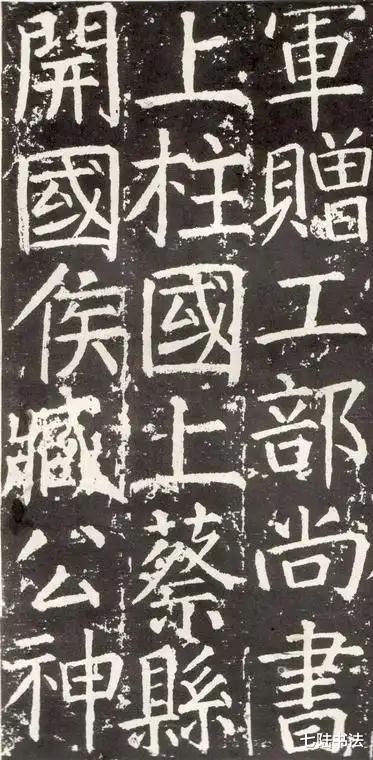 軍贈工部尚書
上柱國上蔡縣
開國侯臧公神
七陆书法